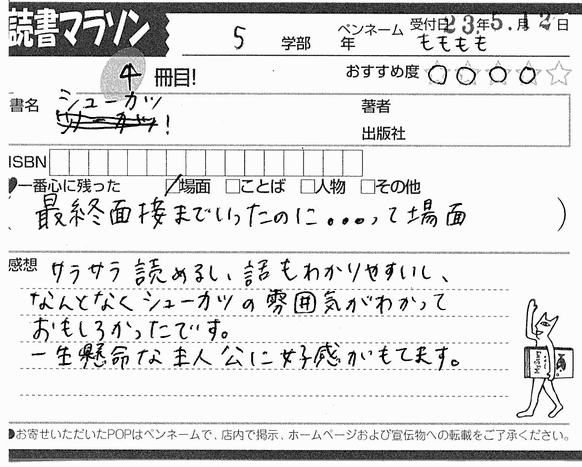 読書マラソン
受付日 23年5.月12日
5 学部 年 ペンネーム もももも
4 冊目! おすすめ度
書名 シューカツ! 著者
出版社
ISBN
一番心に残った 場面 ことば 人物 その他
( 最終面接までいったのに…って場面 )
感想 サラサラ読めるし、話もわかりやすいし、
なんとなくシューカツの雰囲気がわかって
おもしろかったです。
一生懸命な主人公に好感がもてます。
●お寄せいただいたPOPはペンネームで、店内で掲示、ホームページおよび宣伝物への転載をご了承ください。